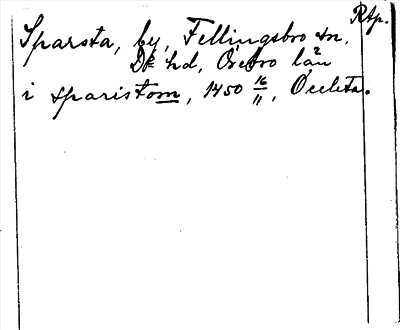 Rtp.
Sparsta, by, Fellingsbro sn,
hd, Örebro län
i sparistom, 1450 16/11,